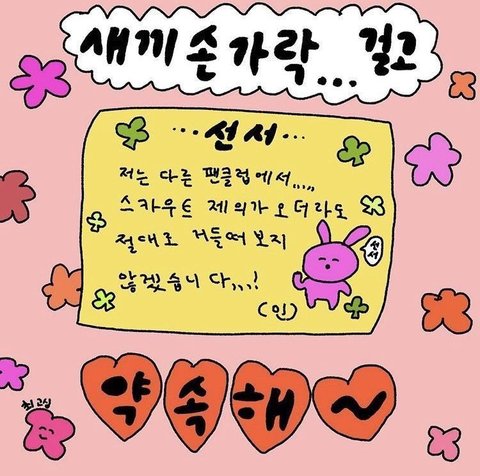 새끼손가락... 걸고
...선서...
저는 다른 팬클럽에서,,,,,
스카우트 제의가 오더라도
절대로 거들떠보지
않겠습니다,,,!
(인)
선서
약속해~
최고심